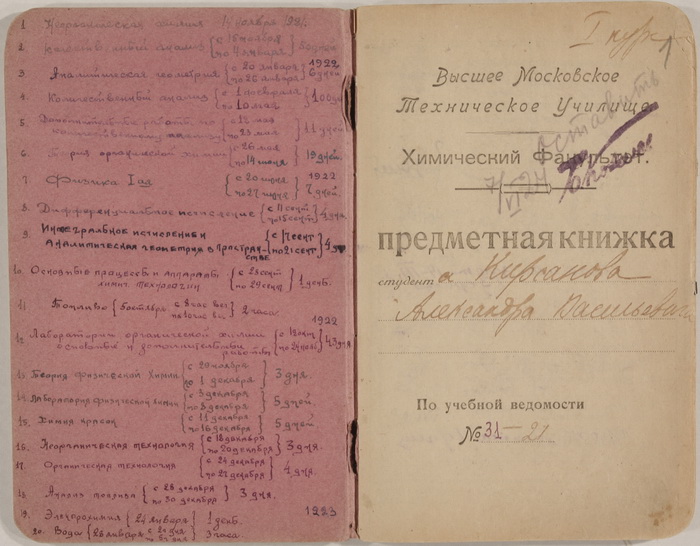 1. Неорганическая химия 14 ноября 1921.
2. Качественный анализ { с 15 ноября по 4 января } 50 дней
3. Аналитическая геометрия { с 20 января по 26 января } 1922 6 дней
4. Количественный анализ { с 1 февраля по 10 мая } 100 дн
5. Дополнительные работы по количественному анализу { с 12 мая по 23 мая } 11 дней
6. Теория органической химии { с 26 мая по 14 июня } 19 дней.
7. Физика I ая { с 20 июня по 27 июня } 1922 7 дней.
8. Дифференциальное исчисление { с 11 сент по 15 сент } 4 дня.
9. Интегральное исчисление и Аналитическая геометрия в пространстве { с 17 сент по 21 сент } 4 дня
10. Основные процессы и аппараты химич. технологии { с 28 сент по 29 сент } 1 день.
11. Топливо { 5 октября с 8 час веч по 10 час в. } 2 часа
12. Лаборатория органической химии основные и дополнительные работы 1922 { с 12 окт по 24 } 43 дня
13. Теория физической химии { с 28 ноября по 1 декабря } 3 дня.
14. Лаборатория физической химии { с 3 декабря по 8 декабря } 5 дней.
15. Химия красок { с 11 декабря по 16 декабря } 5 дней
16. Неорганическая технология { с 18 декабря по 20 декабря } 3 дня.
17. Органическая технология { с 24 декабря по 27 декабря } 4 дня.
18. Анализ топлива { с 28 декабря по 30 декабря } 3 дня.
19. Электрохимия { 24 января } 1 день. 1923
20. Вода { 26 января } 3 часа.
I курс
Высшее Московское
Техническое Училище
оставить
Химический Факультет.
7/VI 24
предметная книжка
студента Кирсанова
Александра Васильевича
По учебной ведомости
№ 31-21